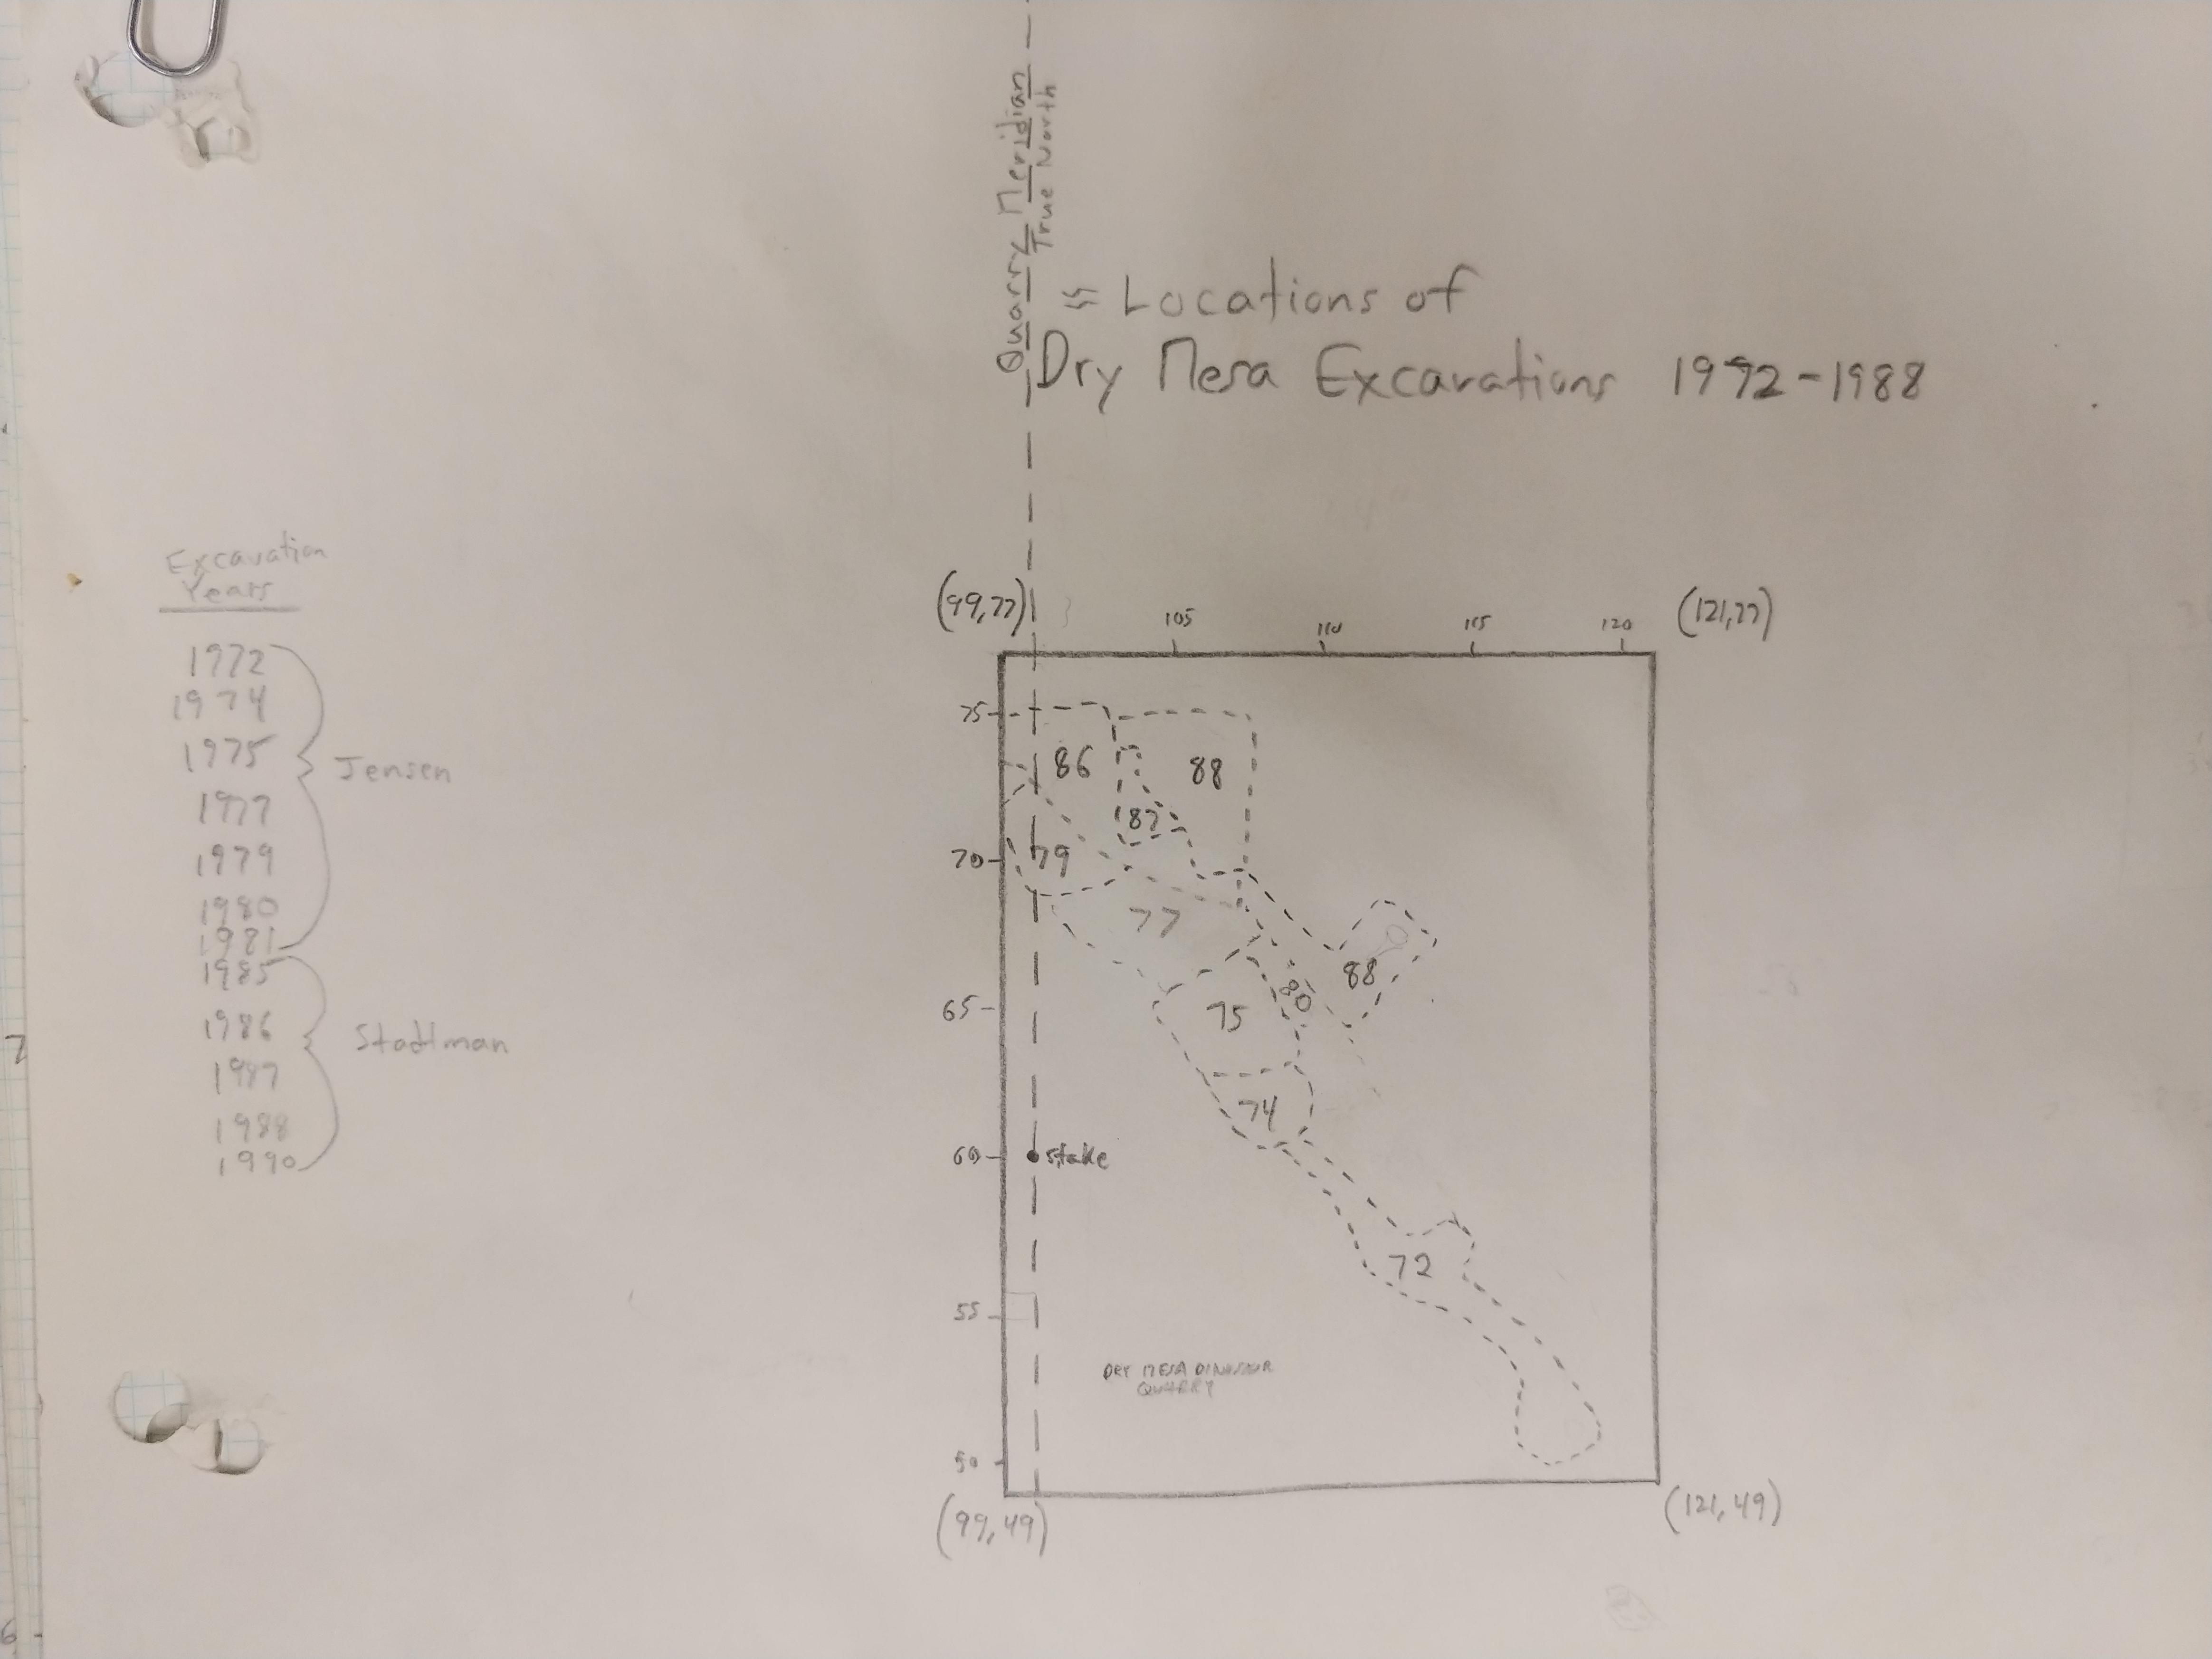 Quarry Meridian
True North
≈ Locations of
Dry Mesa Excavations 1992-1988
Excavation
Years
1972
1974
1975
1977
1979
1980
1981
Jensen
1985
1986
1987
1988
1990
Stadtman
(99,77)
105
110
115
120
(121,77)
75
70
65
60
55
50
86
88
87
79
77
88
80
75
74
stake
72
DRY MESA DINOSAUR
QUARRY
(99,49)
(121,49)
7
6